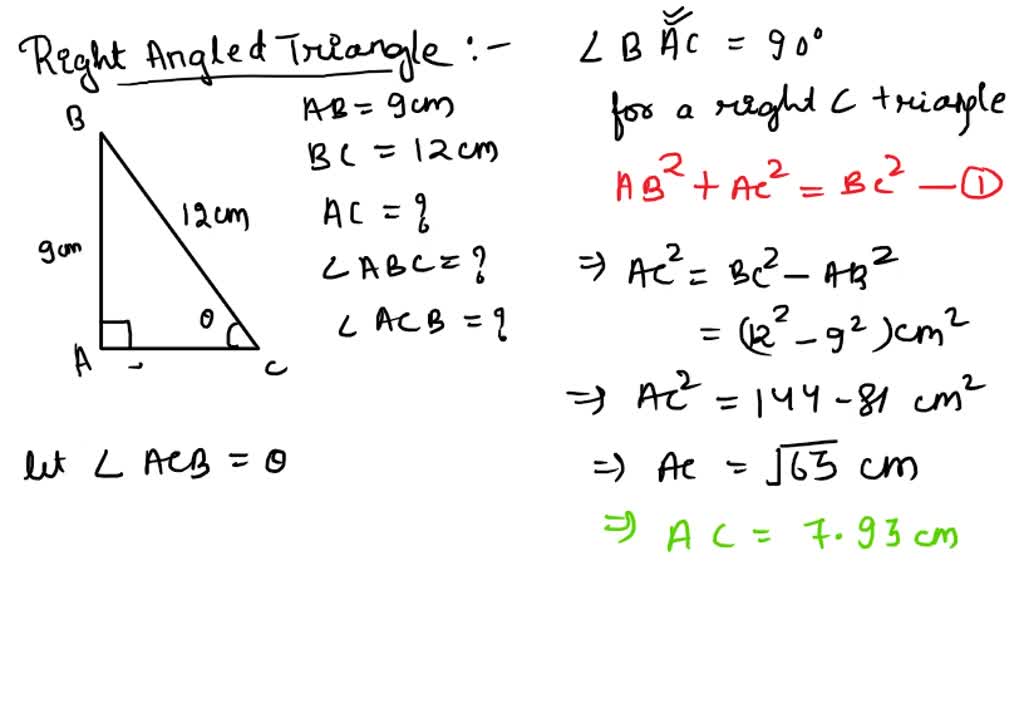 Right Angled Triangle :-
B
9cm
12cm
θ
A
C
AB = 9cm
BC = 12cm
AC = ?
∠ABC = ?
∠ACB = ?
let ∠ACB = θ
∠BAC = 90°
for a right ∠ triangle
AB² + AC² = BC² — ①
⇒ AC² = BC² - AB²
= (12² - 9²)cm²
⇒ AC² = 144 - 81 cm²
⇒ AC = √63 cm
⇒ AC = 7.93 cm